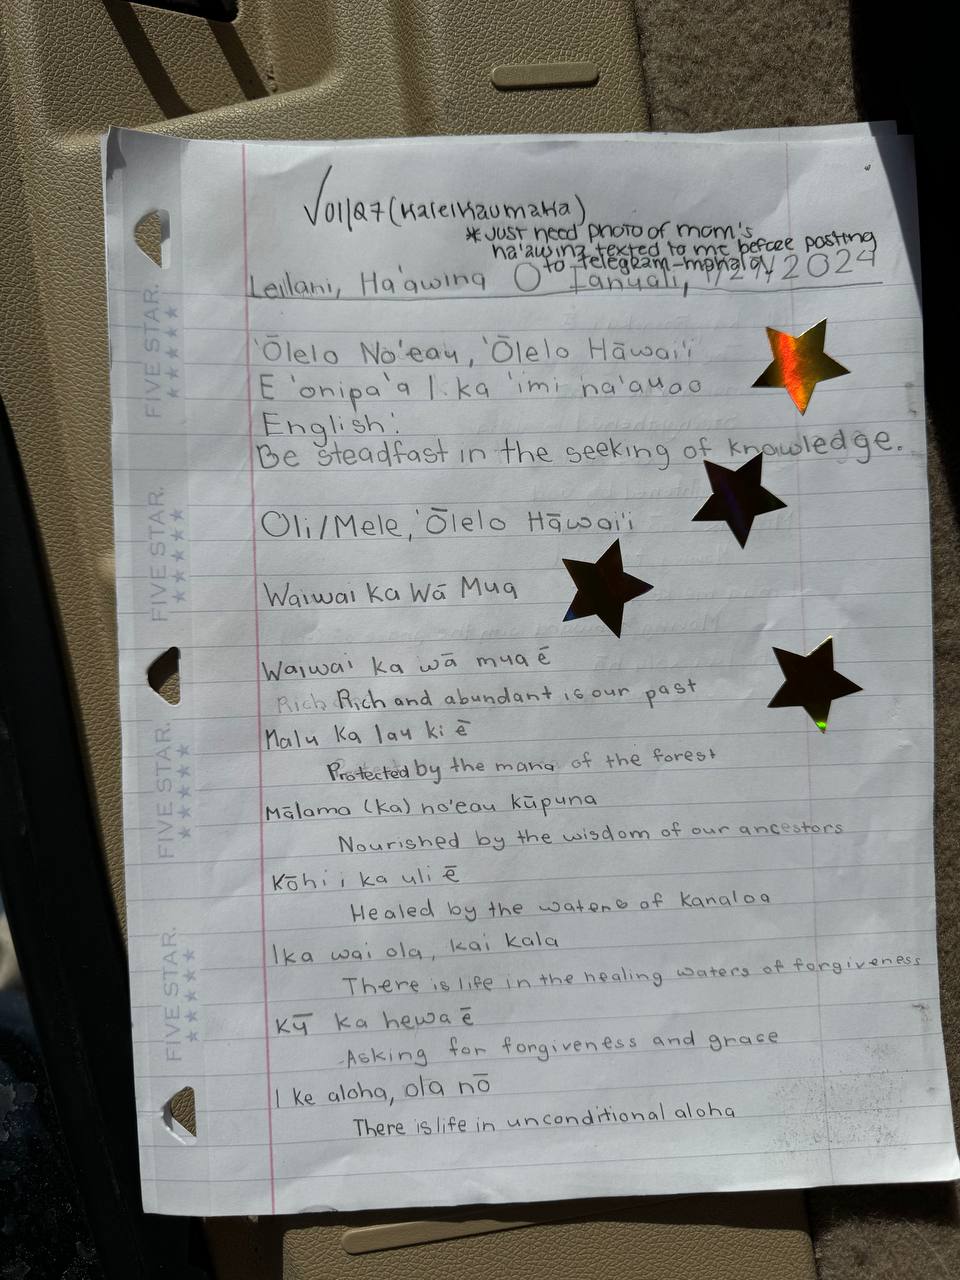 √01/27 (Kaleikaumaka)
* Just need photo of mom's
ha'awina texted to me before posting
to Telegram-mahalo!
Leilani, Ha'awina O Ianuali, 1/29/2024
'Ōlelo No'eau, 'Ōlelo Hāwai'i
E 'onipa'a I ka 'imi na'auao
English:
Be steadfast in the seeking of knowledge.
Oli/Mele, 'Ōlelo Hāwai'i
Waiwai Ka Wā Mua
Waiwai ka wā mua ē
Rich Rich and abundant is our past
Malu Ka lau ki ē
Protected by the mana of the forest
Mālama (ka) no'eau kūpuna
Nourished by the wisdom of our ancestors
Kōhi i ka uli ē
Healed by the waters of Kanaloa
Ika wai ola, kai kala
There is life in the healing waters of forgiveness
Kū ka hewa ē
Asking for forgiveness and grace
I ke aloha, ola nō
There is life in unconditional aloha
FIVE STAR.
FIVE STAR.
FIVE STAR.
FIVE STAR.